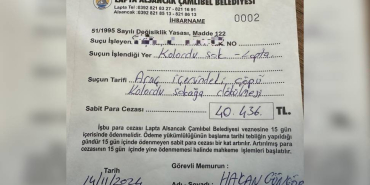 LAPTA ALSANCAK ÇAMLIBEL BELEDİYESİ
Lapta Tel: 0392 821 83 27 - 821 16 91
Alsancak: 0392 821 85 13 - 821 86 13
İHBARNAME
0002
51/1995 Sayılı Değişiklik Yasası, Madde 122
Suçu İşleyen NO
Suçun İşlendiği Yer Kolordu sok - Lapta
Suçun Tarifi Araç içerisindeki çöpü
Kolordu sokağa dökülmesi
Sabit Para Cezası: 40.436. TL.
İşbu para cezası Lapta Alsancak Çamlıbel Belediyesi veznesine 15 gün
içerisinde ödenmelidir. Ödeme yükümlülüğünün başlama tarihi tebliğin yapıldığı
gündür 15 gün içinde ödenmeyen sabit para cezası bir kat artırılır. Artırılmış para
cezasının 15 gün içinde yine ödenmemesi halinde mahkeme işlemleri başlatılır.
Tarih Görevli Memurun:
14/11/2024 Adı - Soyadı: HAKAN GÜNGÖR